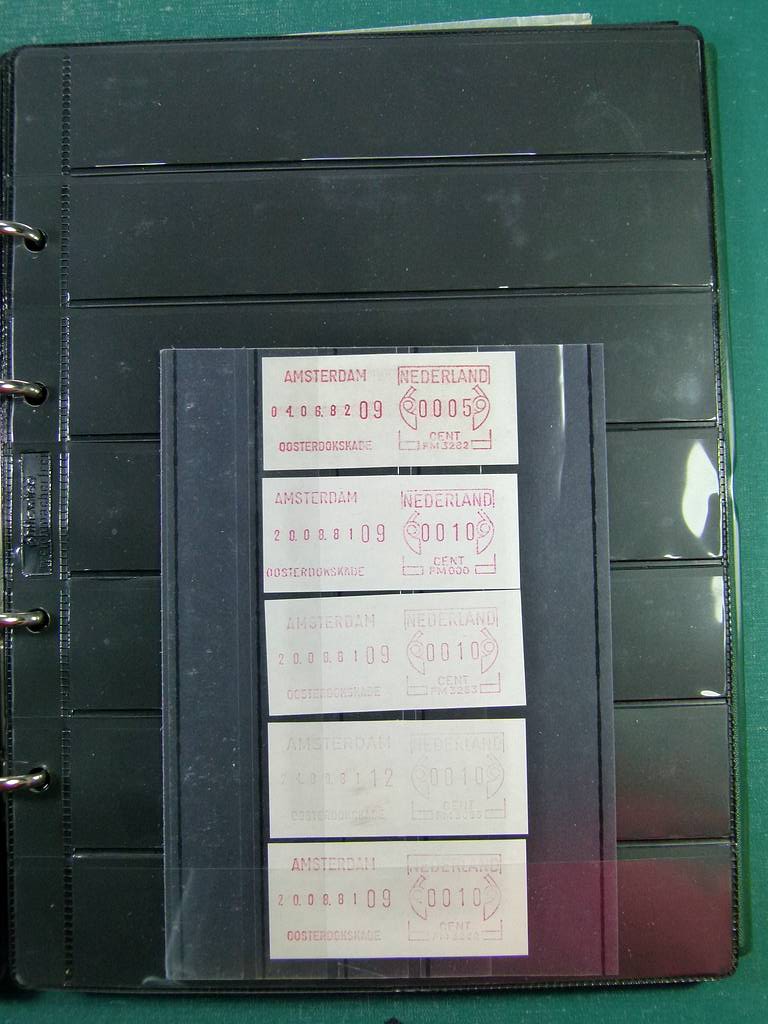 AMSTERDAM NEDERLAND
04.06.82 09 0005
OOSTERDOKSKADE CENT
FM 3282
AMSTERDAM NEDERLAND
20.08.81 09 0010
OOSTERDOKSKADE CENT
FM 000
AMSTERDAM NEDERLAND
20.08.81 09 0010
OOSTERDOKSKADE CENT
FM 3283
AMSTERDAM NEDERLAND
12 0010
OOSTERDOKSKADE CENT
AMSTERDAM NEDERLAND
20.08.81 09 0010
OOSTERDOKSKADE CENT